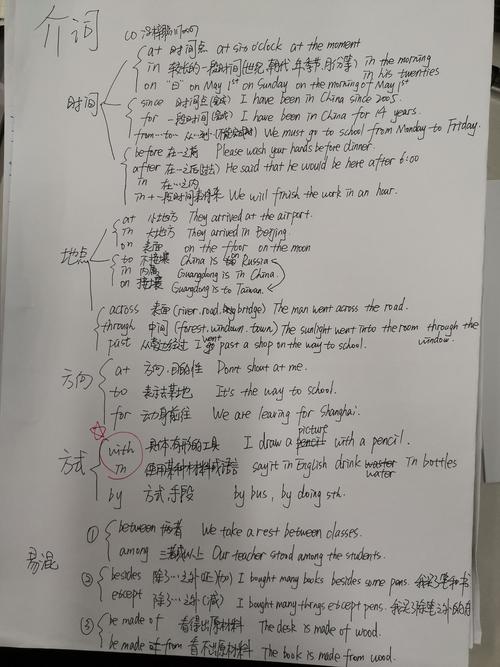 介词
时间
at 时间点 at six o'clock at the moment
in 较长的一段时间(世纪、朝代、年、季节、月份等) in the morning
in his twenties
on "日" on May 1st on Sunday on the morning of May 1st
since 时间点(完成) I have been in China since 2005.
for 一段时间(完成) I have been in China for 14 years.
from…to… 从…到… We must go to school from Monday to Friday.
before 在…之前 Please wash your hands before dinner.
after 在…之后(过去) He said that he would be here after 6:00
in 在…之内
in + 一段时间表将来 We will finish the work in an hour.
地点
at 小地方 They arrived at the airport.
in 大地方 They arrived in Beijing.
on 表面 on the floor on the moon
to 不接壤 China is Russia
in 内属 Guangdong is in China.
on 接壤 Guangdong is to Taiwan.
across 表面 (river. road. bridge) The man went across the road.
through 中间 (forest. window. town) The sunlight went into the room through the
window.
past 从旁边经过 I went past a shop on the way to school.
方向
at 方向、目的性 Don't shout at me.
to 表示去某地 It's the way to school.
for 动身前往 We are leaving for Shanghai.
方式
with 具体有形的工具 I draw a picture with a pencil.
in 使用某种材料或语言 say it in English drink water in bottles
by 方式手段 by bus, by doing sth.
易混
① between 两者 We take a rest between classes.
among 三者或以上 Our teacher stand among the students.
② besides 除了…之外(还)(加) I bought many books besides some pens. 我买了笔和书
except 除了…之外(减) I bought many things except pens. 我买了除笔之外的东西
③ be made of 看得出原材料 The desk is made of wood.
be made from 看不出原材料 The book is made from wood.